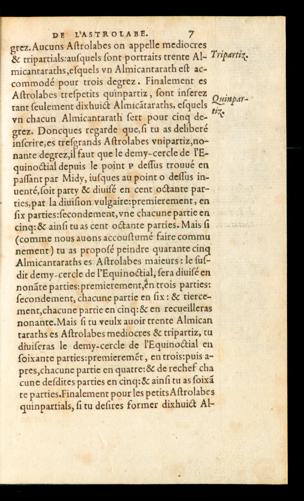 DE L'ASTROLABE. 7
grez. Aucuns Astrolabes on appelle mediocres
& tripartials: ausquels sont portraits trente Al-
micantaraths, esquels vn Almicantarath est ac-
commodé pour trois degrez. Finalement es
Astrolabes trespetits quinpartiz, sont inserez
tant seulement dixhuict Almicãtaraths. esquels
vn chacun Almicantarath sert pour cinq de-
grez. Doncques regarde que, si tu as deliberé
inscrire, es tresgrands Astrolabes vnipartiz, no-
nante degrez, il faut que le demy-cercle de l'E-
quinoctial depuis le point P dessus trouué en
passant par Midy, iusques au point o dessus in-
uenté, soit party & diuisé en cent octante par-
ties, par la diuision vulgaire: premierement, en
six parties: secondement, vne chacune partie en
cinq: & ainsi tu as cent octante parties. Mais si
(comme nous auons accoustumé faire commu
nement) tu as proposé peindre quarante cinq
Almicantaraths es Astrolabes maieurs: le sus-
dit demy-cercle de l'Equinoctial, sera diuisé en
nonãte parties: premierement, en trois parties:
secondement, chacune partie en six: & tierce-
ment, chacune partie en cinq: & en recueilleras
nonante. Mais si tu veulx auoir trente Almican
taraths es Astrolabes mediocres & tripartiz, tu
diuiseras le demy-cercle de l'Equinoctial en
soixante parties: premieremẽt, en trois: puis a-
pres, chacune partie en quatre: & de rechef cha
cune desdites parties en cinq: & ainsi tu as soixã
te parties. Finalement pour les petits Astrolabes
quinpartials, si tu desires former dixhuict Al-
Tripartiz.
Quinpar-
tiz.